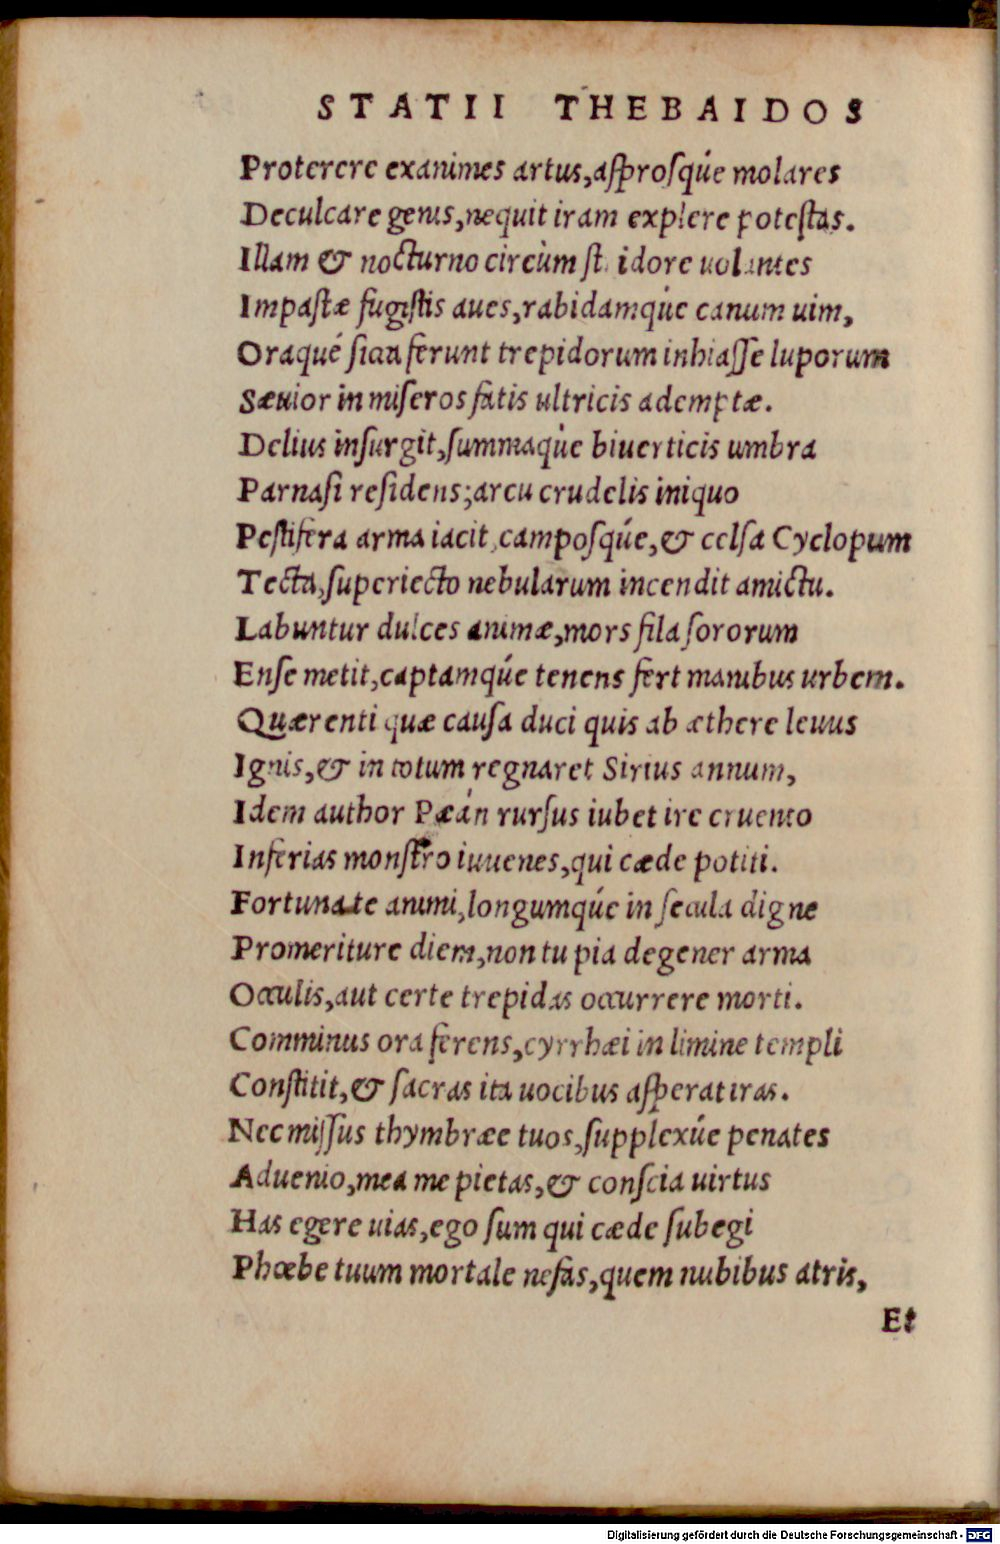 STATII THEBAIDOS
Proterere exanimes artus, aſproſqúe molares
Deculcare genis, nequit iram explere poteſtas.
Illam & nocturno circùm ſt idore uolantes
Impaſtæ fugiſtis aues, rabidamqúe canum uim,
Oraqué ſicca ferunt trepidorum inhiaſſe luporum
Sæuior in miſeros fatis ultricis ademptæ.
Delius inſurgit, ſummaqùe biuerticis umbra
Parnaſi reſidens; arcu crudelis iniquo
Peſtifera arma iacit, campoſqúe, & celſa Cyclopum
Tecta, ſuperiecto nebularum incendit amictu.
Labuntur dulces animæ, mors fila ſororum
Enſe metit, captamqúe tenens fert manibus urbem.
Quærenti quæ cauſa duci quis ab æthere leuus
Ignis, & in totum regnaret Sirius annum,
Idem author Pæán rurſus iubet ire cruento
Inferias monſtro iuuenes, qui cæde potiti.
Fortunate animi, longumqúe in ſecula digne
Promeriture diem, non tu pia degener arma
Occulis, aut certe trepidas occurrere morti.
Comminus ora ferens, cyrrhæi in limine templi
Conſtitit, & ſacras ita uocibus aſperat iras.
Nec miſſus thymbræe tuos, ſupplexúe penates
Aduenio, mea me pietas, & conſcia uirtus
Has egere uias, ego ſum qui cæde ſubegi
Phœbe tuum mortale nefas, quem nubibus atris,
Et
Digitalisierung gefördert durch die Deutsche Forschungsgemeinschaft - DFG